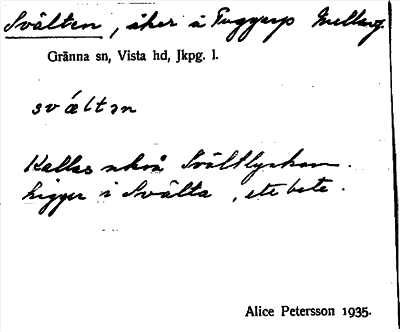 Svälten, åker i Tuggarp Mellang.
Gränna sn, Vista hd, Jkpg. l.
svältən
Kallas också Svältlyckan.
Ligger i Svälta, ete bete.
Alice Petersson 1935.